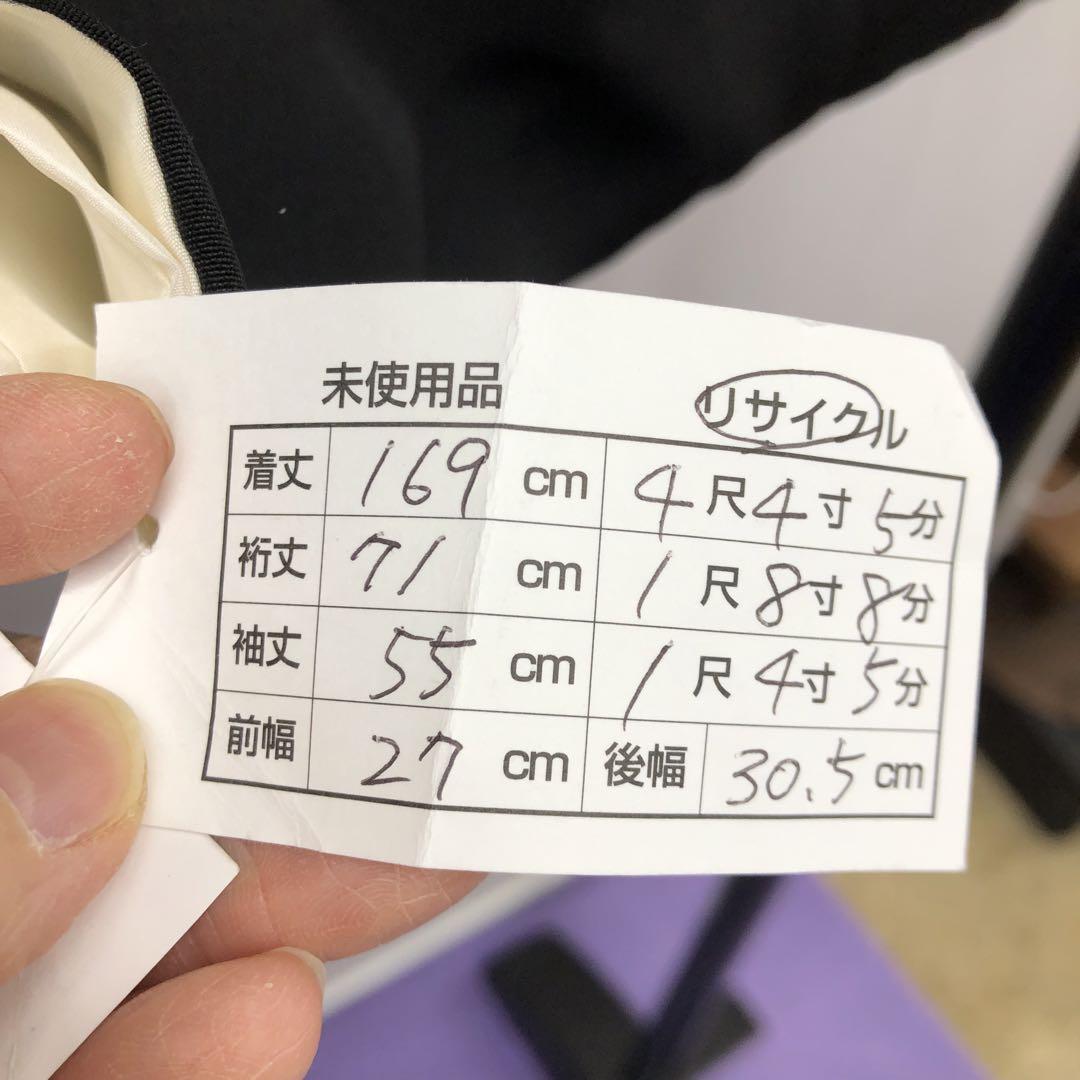 未使用品 リサイクル
着丈 169 cm 4尺4寸5分
裄丈 71 cm 1尺8寸8分
袖丈 55 cm 1尺4寸5分
前幅 27 cm 後幅 30.5 cm